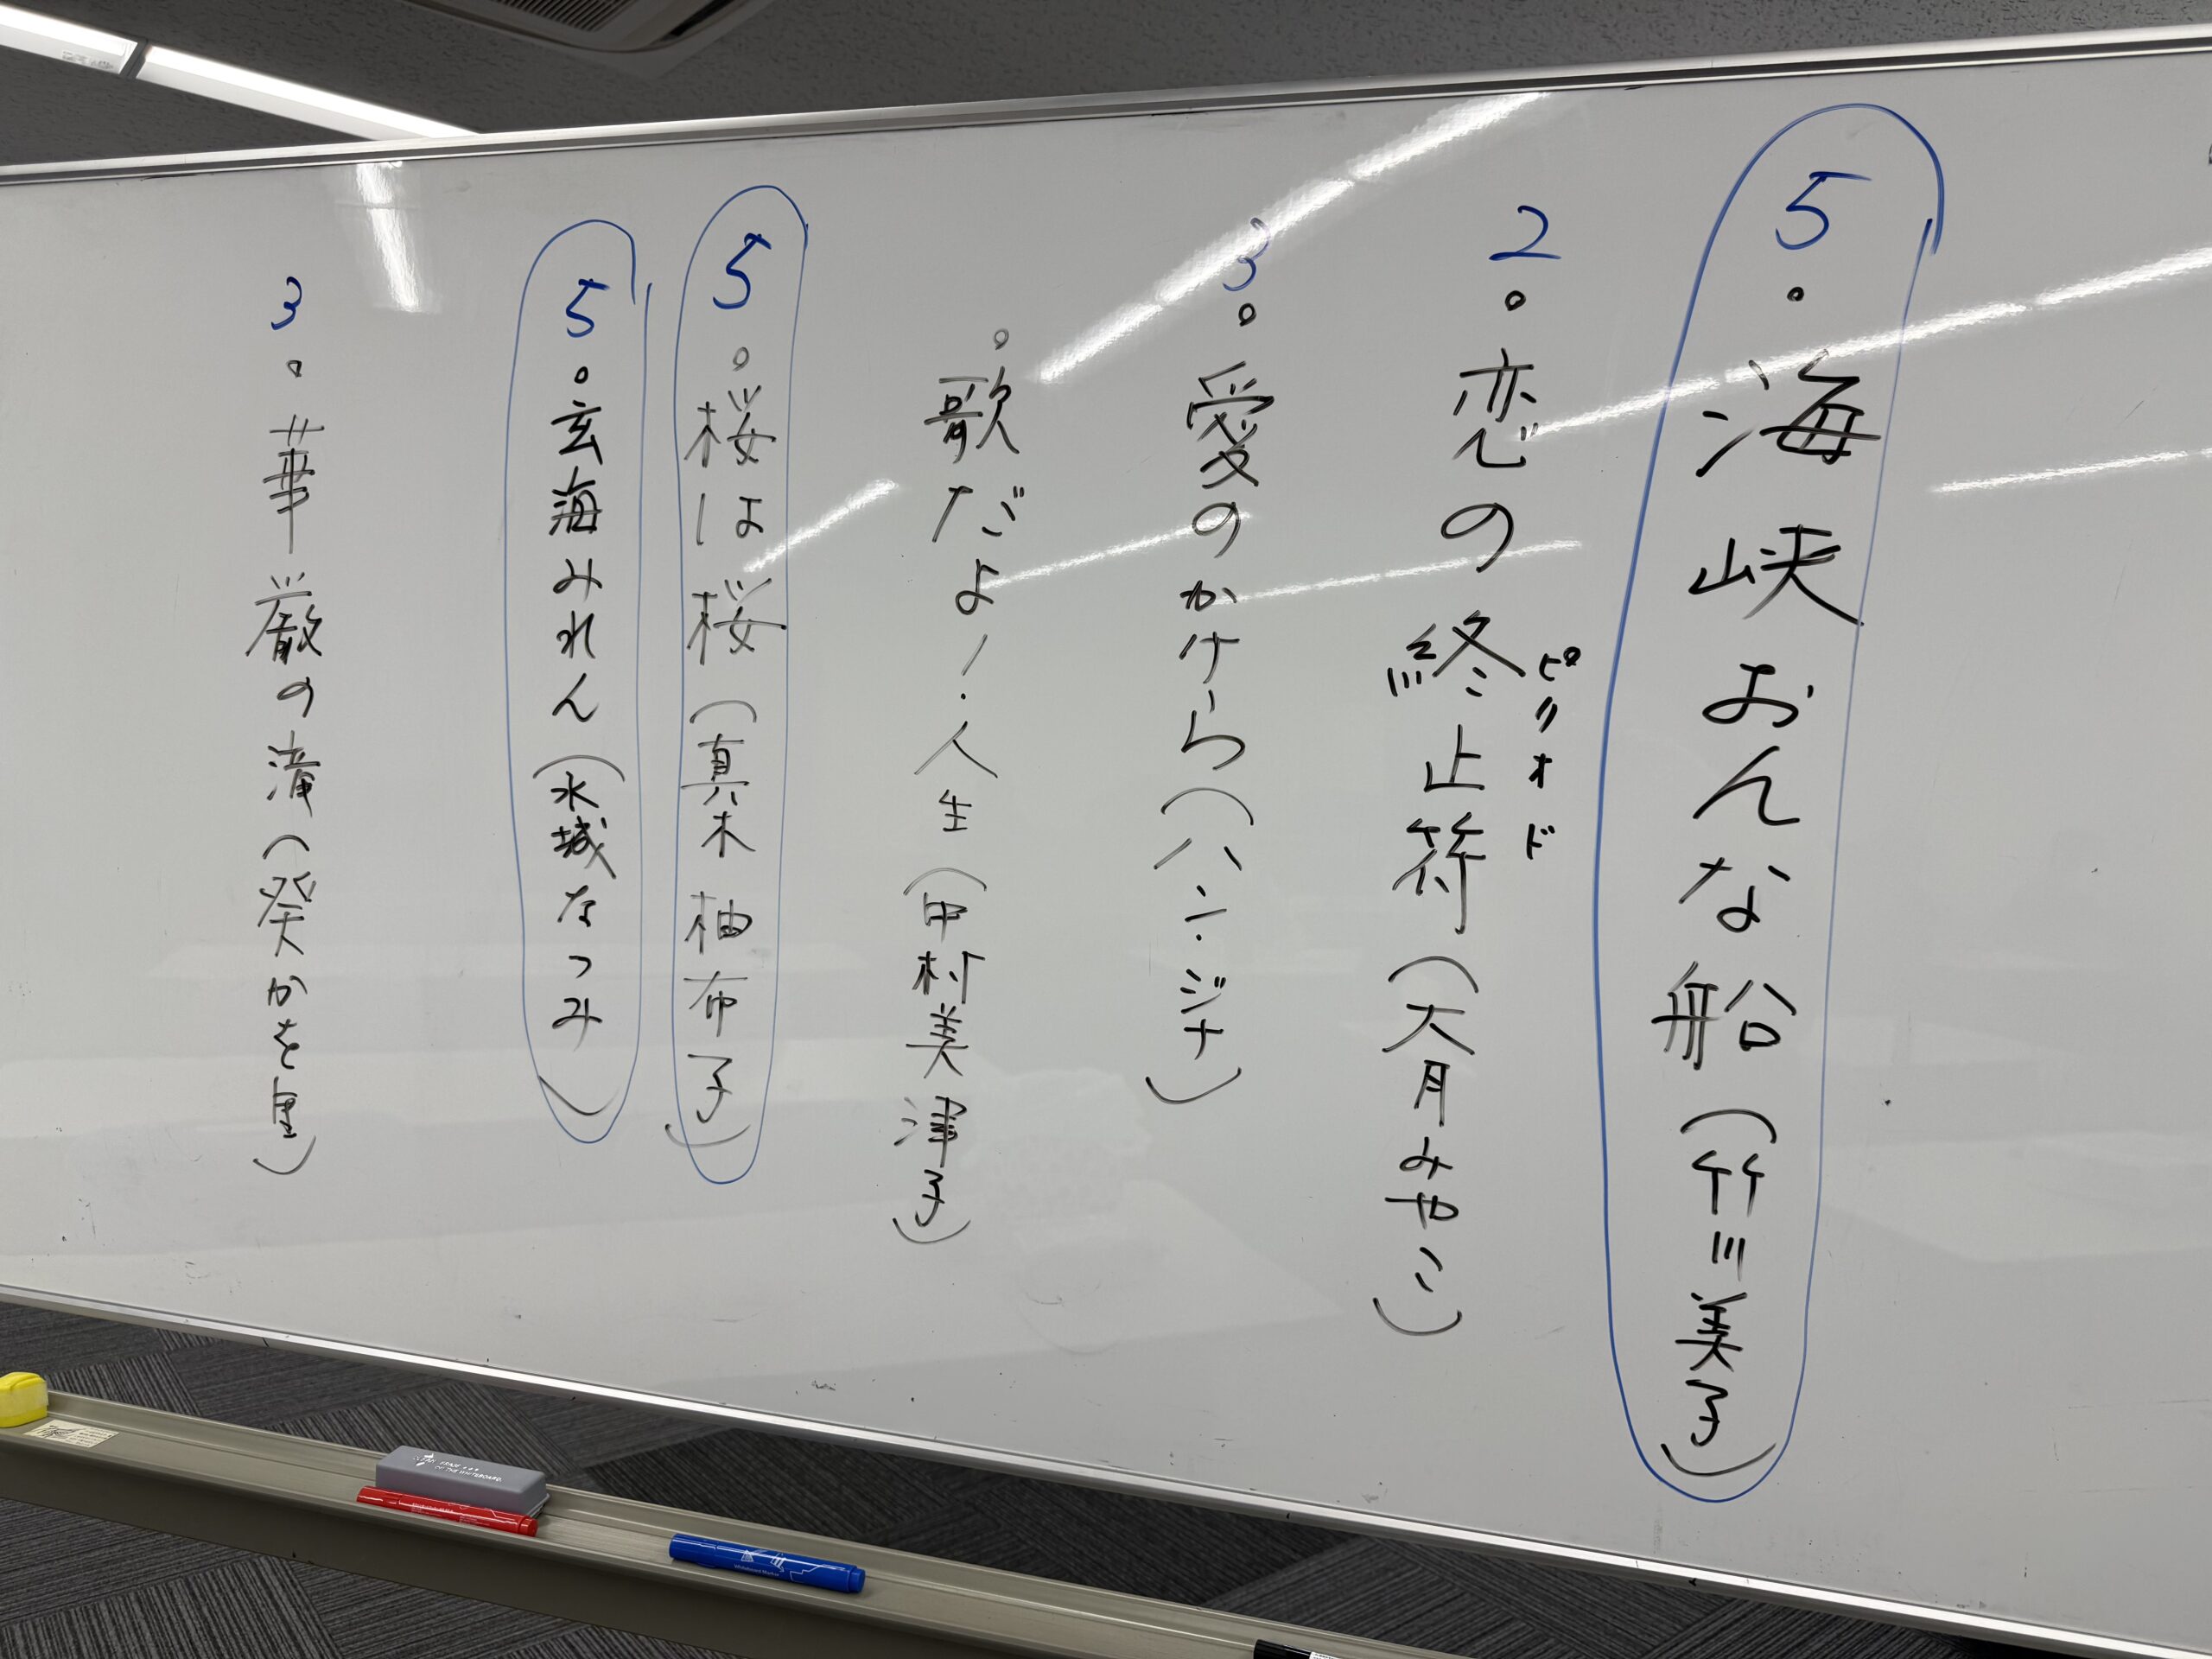 5 。海峡おんな船（竹川美子）
2 。恋の終止符（大月みやこ）
ピリオド
3 。愛のかけら（ハン・ジナ）
。歌だよ！人生（中村美津子）
5 。桜は桜（真木柚布子）
5 。玄海みれん（水城なつみ）
3 。華厳の滝（葵かを里）